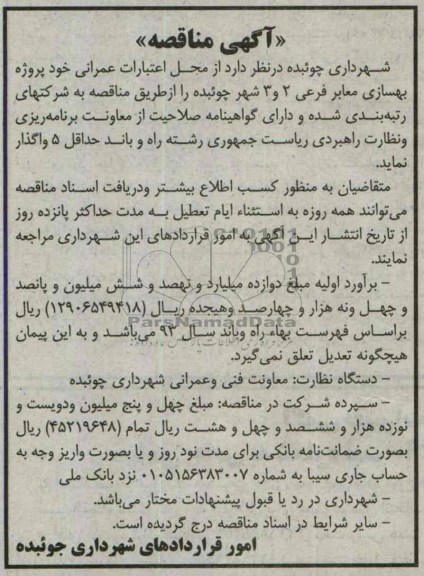 «آگهی مناقصه»
شهرداری چوئبده درنظر دارد از محل اعتبارات عمرانی خود پروژه
بهسازی معابر فرعی ۲ و۳ شهر چوئبده را ازطریق مناقصه به شرکتهای
رتبه‌بندی شده و دارای گواهینامه صلاحیت از معاونت برنامه‌ریزی
ونظارت راهبردی ریاست جمهوری رشته راه و باند حداقل ۵ واگذار
نماید.
متقاضیان به منظور کسب اطلاع بیشتر ودریافت اسناد مناقصه
می‌توانند همه روزه به استثناء ایام تعطیل به مدت حداکثر پانزده روز
از تاریخ انتشار این آگهی به امور قراردادهای این شهرداری مراجعه
نمایند.
- برآورد اولیه مبلغ دوازده میلیارد و نهصد و شش میلیون و پانصد
و چهل ونه هزار و چهارصد وهیجده ریال (۱۲۹۰۶۵۴۹۴۱۸) ریال
براساس فهرست بهاء راه وباند سال ۹۲ می‌باشد و به این پیمان
هیچگونه تعدیل تعلق نمی‌گیرد.
- دستگاه نظارت: معاونت فنی وعمرانی شهرداری چوئبده
- سپرده شرکت در مناقصه: مبلغ چهل و پنج میلیون ودویست و
نوزده هزار و ششصد و چهل و هشت ریال تمام (۴۵۲۱۹۶۴۸) ریال
بصورت ضمانت‌نامه بانکی برای مدت نود روز و یا بصورت واریز وجه به
حساب جاری سیبا به شماره ۰۱۰۵۱۵۶۳۸۳۰۰۷ نزد بانک ملی
- شهرداری در رد یا قبول پیشنهادات مختار می‌باشد.
- سایر شرایط در اسناد مناقصه درج گردیده است.
امور قراردادهای شهرداری جوئبده
ParsNamadData